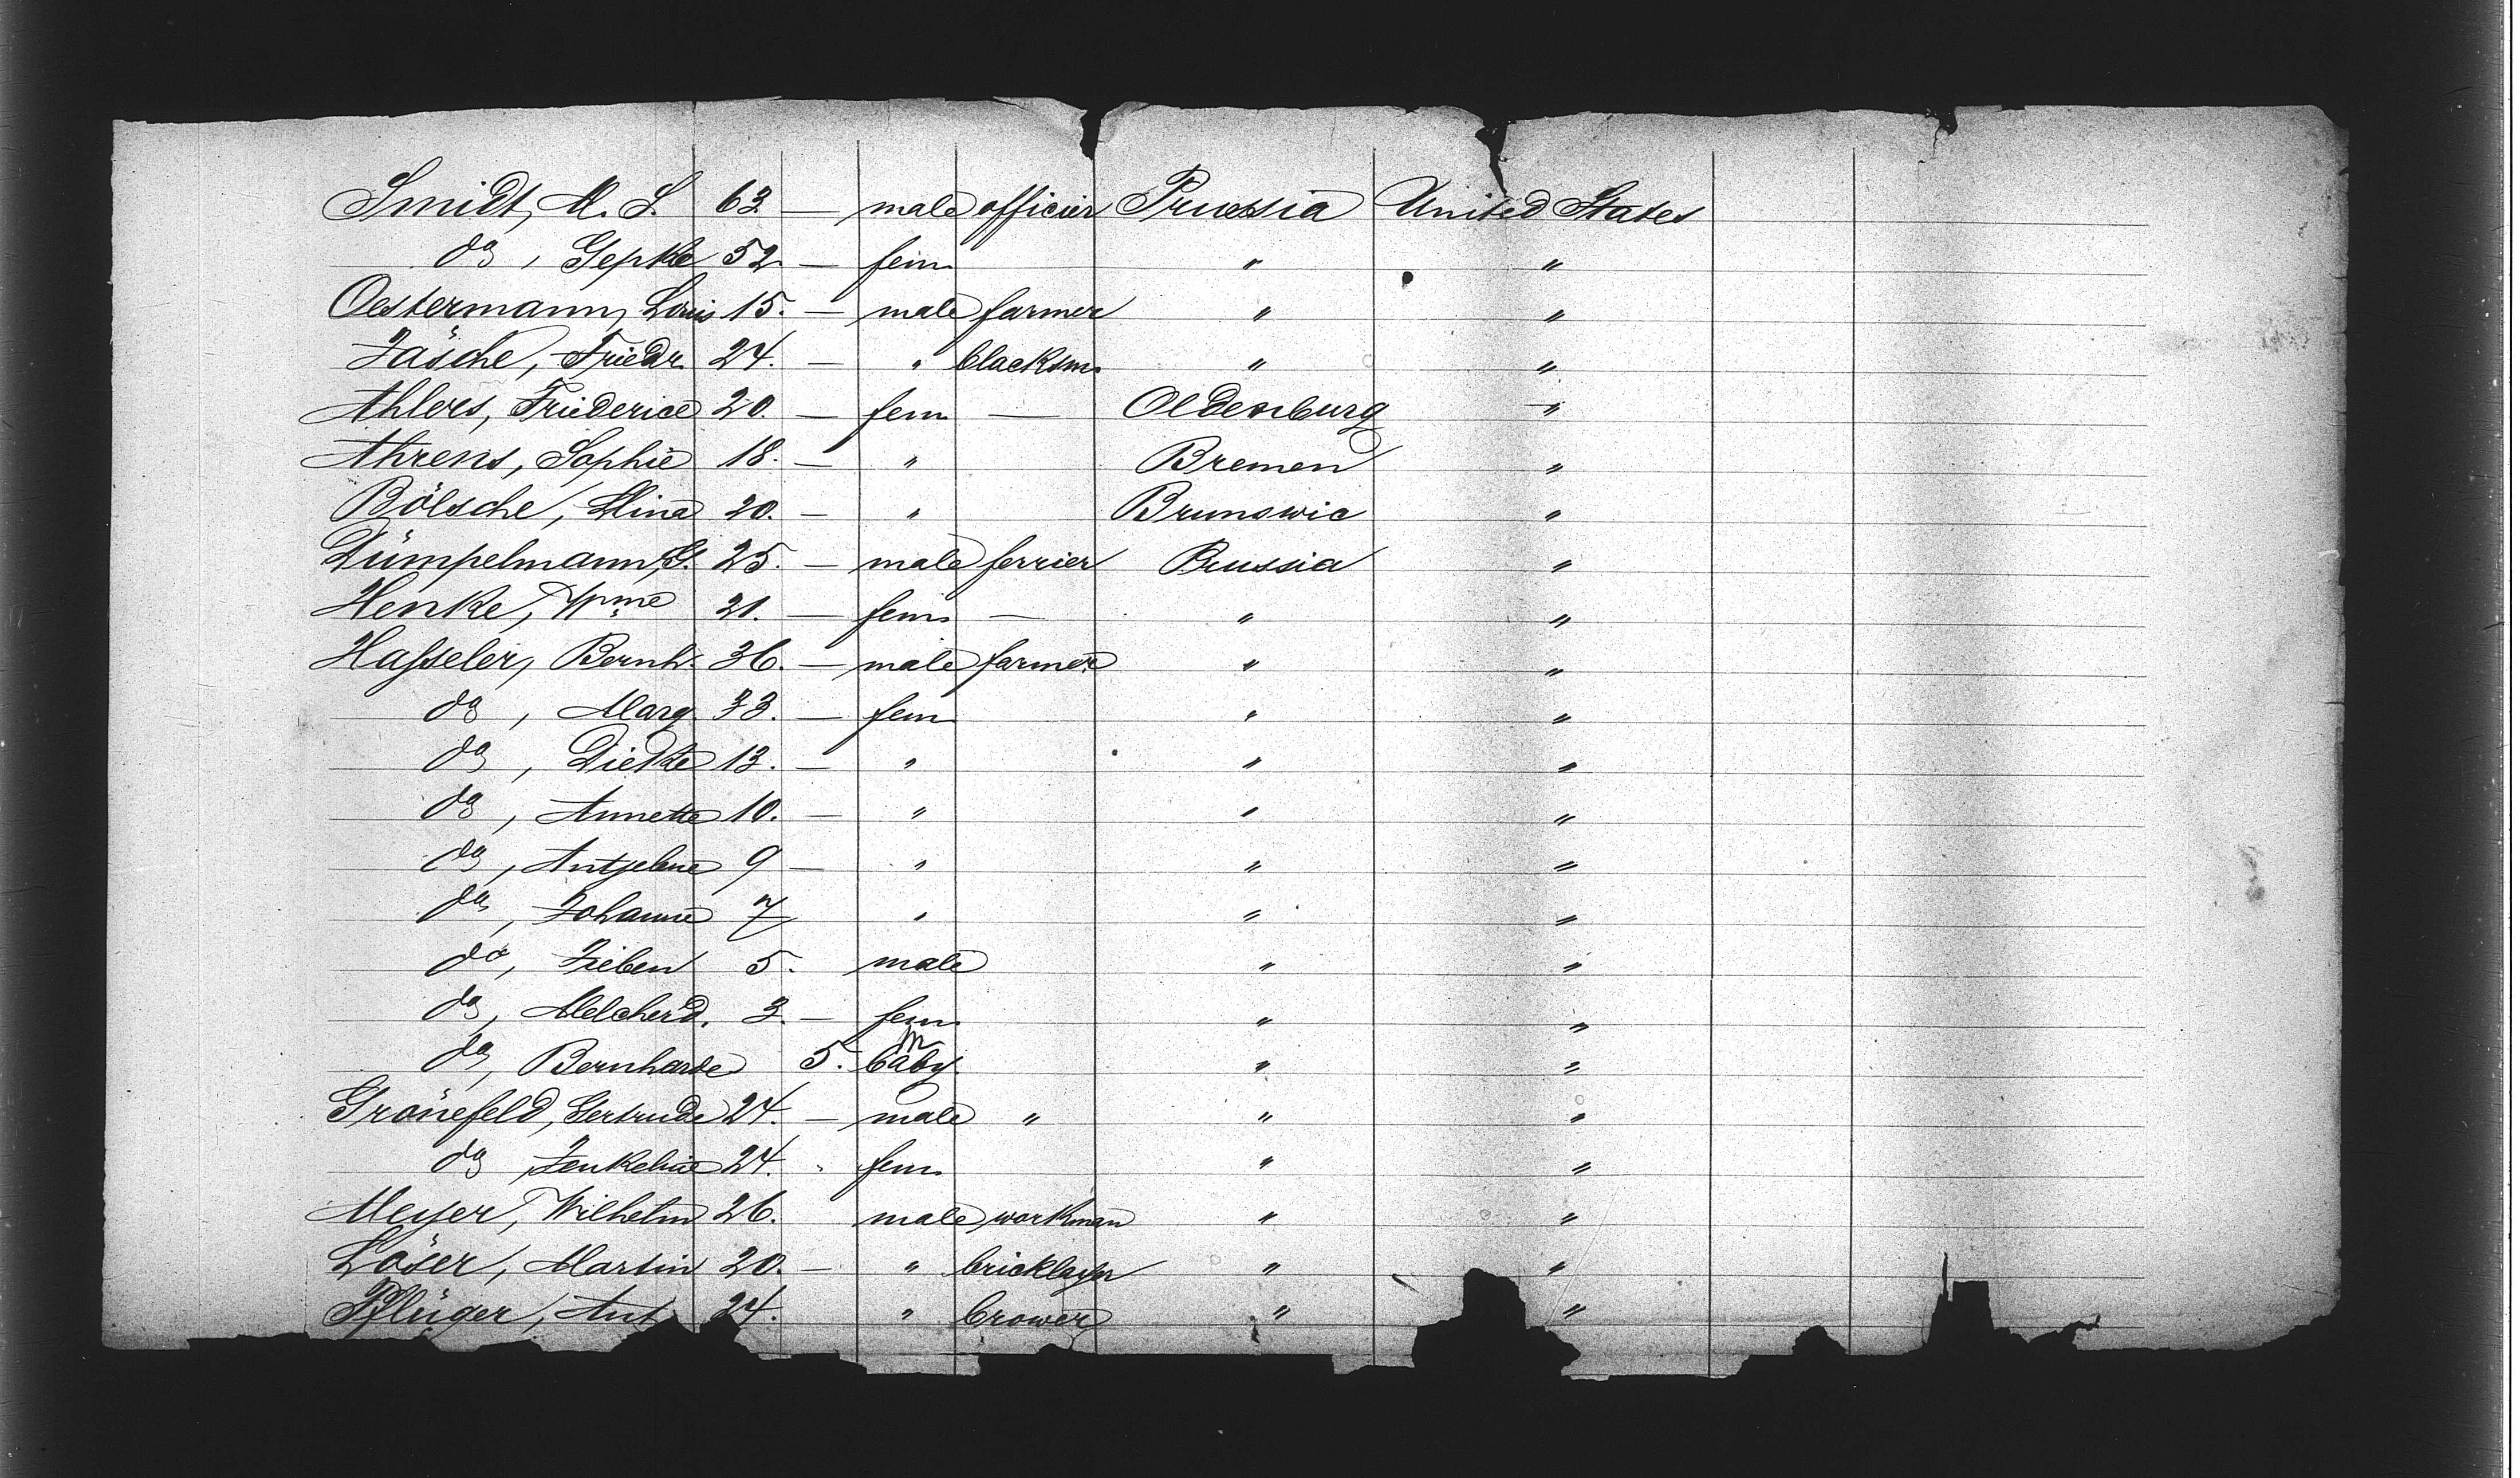 Smidt, M. S. 63. — male officier Prussia United States
do, Gepke 52. — fem " "
Oestermann, Louis 15. — male farmer " "
Jäsche, Friedr. 24. — " blacksm. " "
Ahlers, Friederice 20. — fem — Oldenburg "
Ahrens, Sophie 18. — " Bremen "
Bölsche, Mina 20. — " Brunswic "
Dümpelmann, G. 25. — male ferrier Prussia "
Henke, Wme 21. — fem. — " "
Haßeler, Bernh. 36. — male farmer " "
do, Marg. 33. — fem " "
do, Dietke 13. — " " "
do, Annette 10. — " " "
do, Antjelene 9 — " " "
do, Johanne 7 " " "
do, Jieben 5. male " "
do, Melcherd. 3. — fem. " "
do, Bernharde 5. baby. m " "
Grönefeld, Gertrude 24. — male " " "
do Jenkeline 24. " fem. " "
Meyer, Wilhelm 26. male workman " "
Löser, Martin 20. — " bricklayer " "
Pflüger, Ant. 24. " brower " "